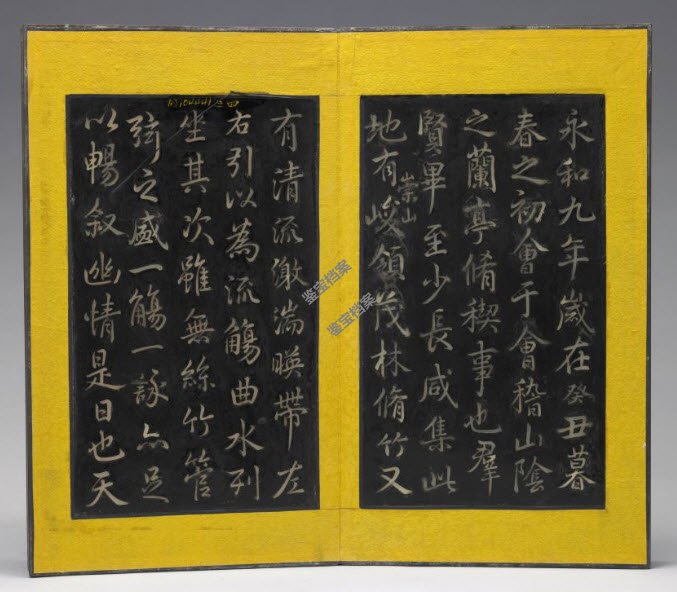 永和九年歲在癸丑暮
春之初會于會稽山陰
之蘭亭脩稧事也羣
賢畢至少長咸集此
地有崇山峻領茂林脩竹又
有清流激湍暎帶左
右引以為流觴曲水列
坐其次雖無絲竹管
弦之盛一觴一詠亦足
以暢敘幽情是日也天
鉴宝档案
鉴宝档案